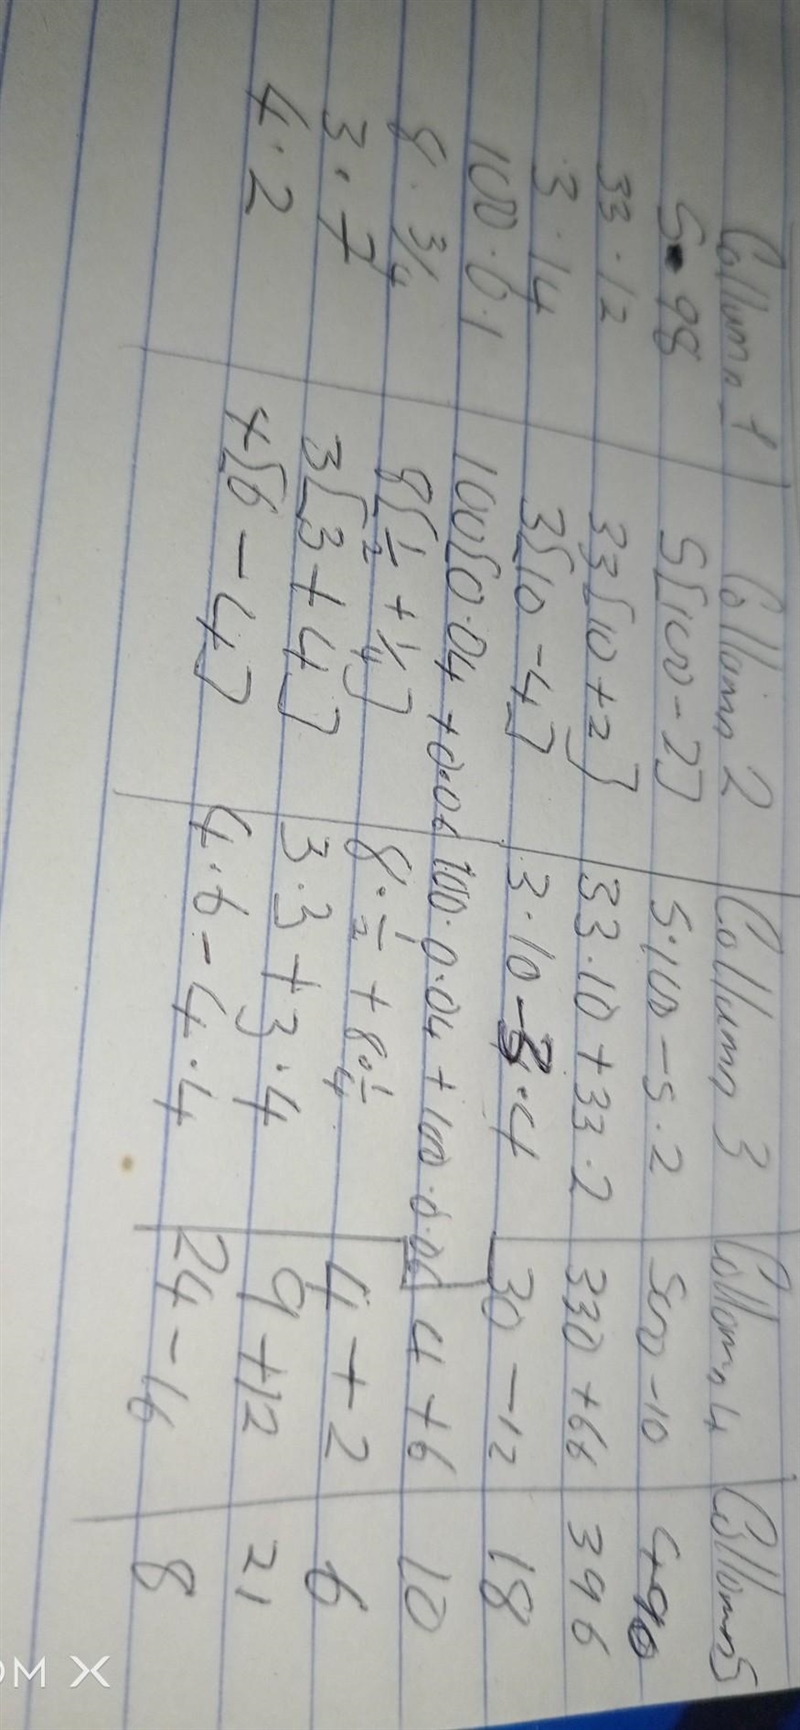 Collumn 1 Collumn 2 Collumn 3 Collumn 4 Collumn 5
5·98 5[100-2] 5·100-5·2 500-10 490
33·12 33[10+2] 33·10+33·2 330+66 396
3·14 3[10-4] 3·10-3·4 30-12 18
100·0.1 100[0.04+0.06 100·0.04+100·0.06 4+6 10
8·3/4 8[1/2+1/4] 8·1/2+8·1/4 4+2 6
3·7 3[3+4] 3·3+3·4 9+12 21
4·2 x[6-4] 4·6-4·4 24-16 8
OM X